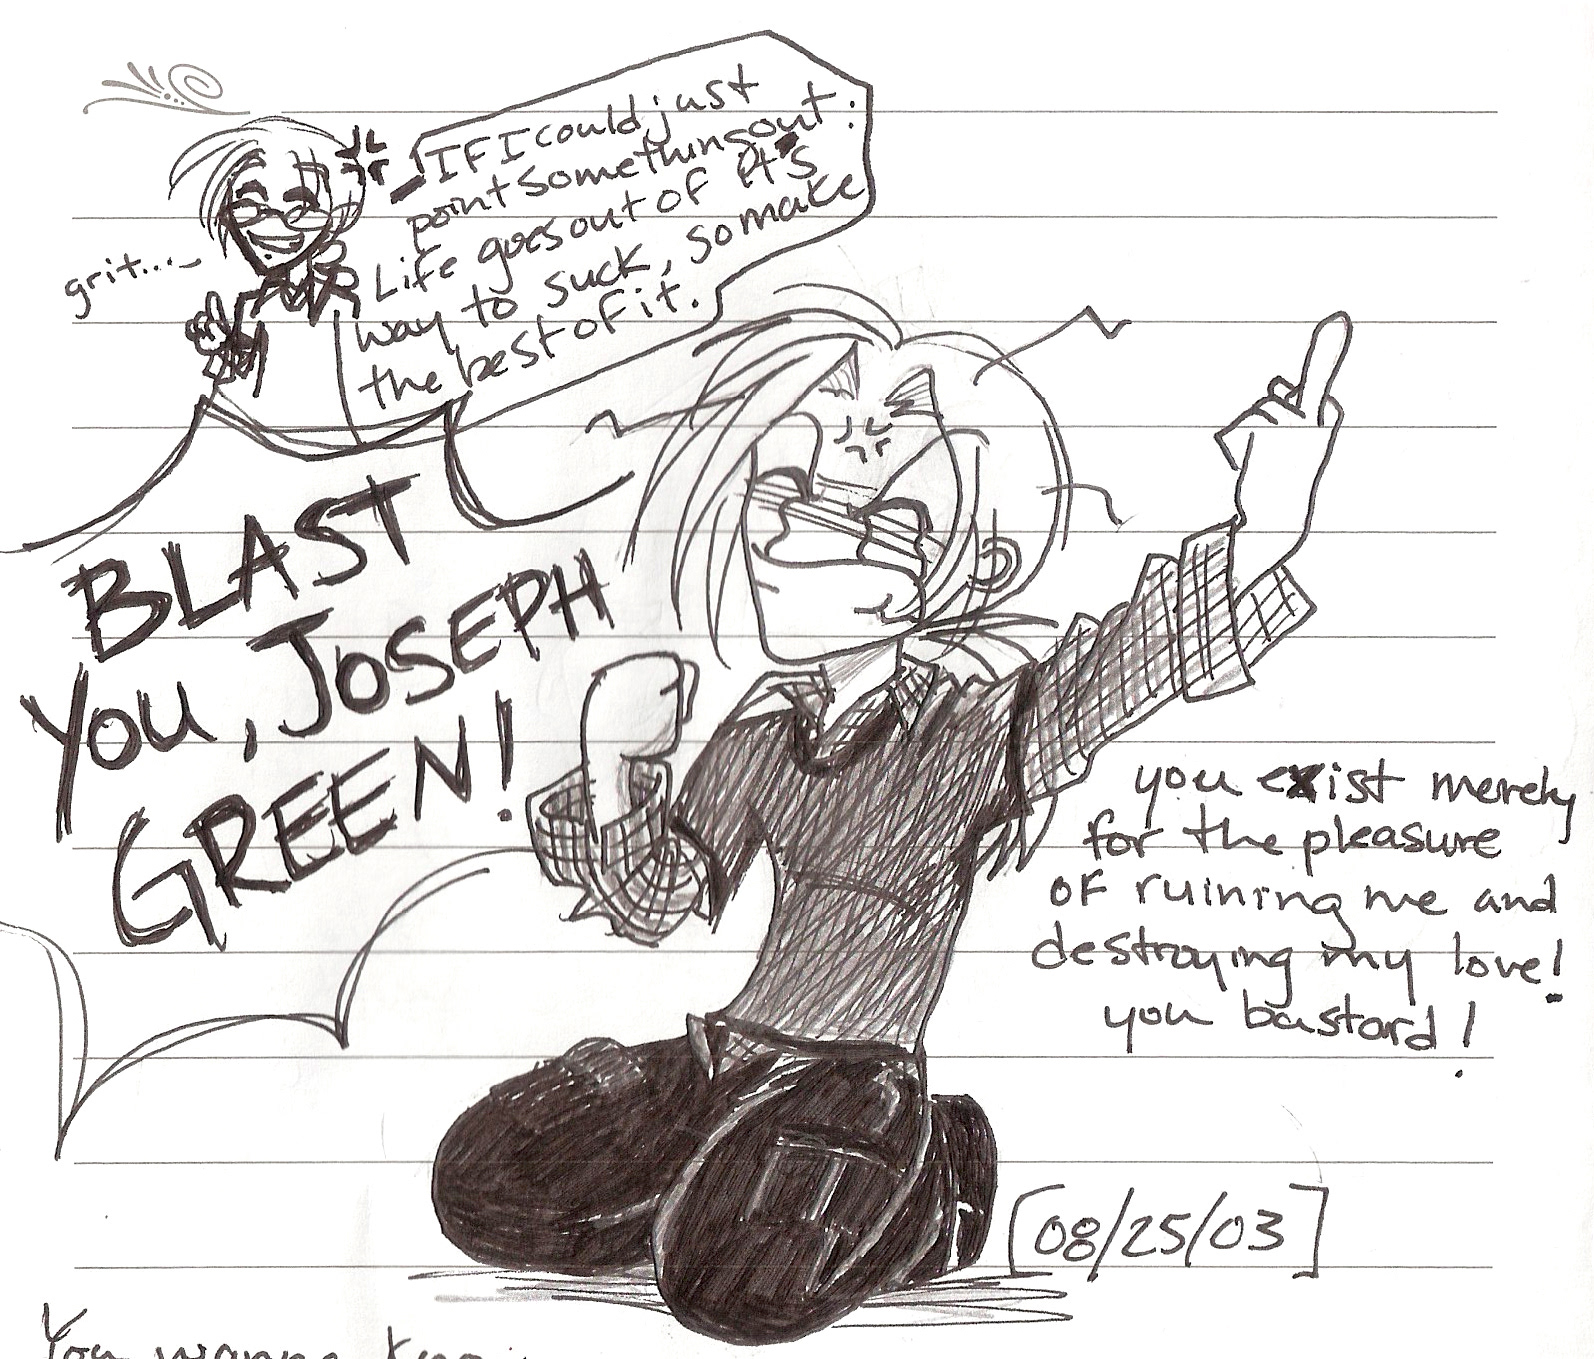 If I could just
point something out:
Life goes out of it's
way to suck, so make
the best of it.
grit....
BLAST
YOU, JOSEPH
GREEN!
you exist merely
for the pleasure
of ruining me and
destroying my love!
you bastard!
[08/25/03]
You wanna